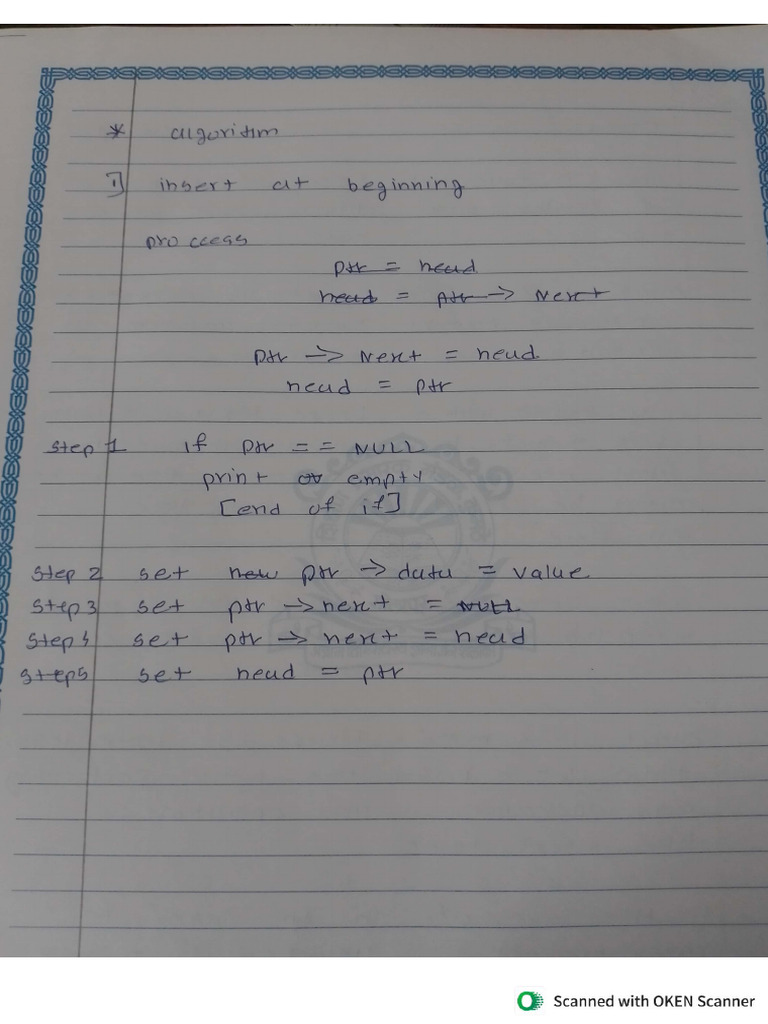 * algoritm
1] insert at beginning
proccess
ptr = head
head = ptr -> Next
ptr -> Next = head
head = ptr
Step 1 if ptr == NULL
print or empty
[end of if]
Step 2 set new ptr -> data = value
Step 3 set ptr -> next = NULL
Step 4 set ptr -> next = head
Step 5 set head = ptr
Scanned with OKEN Scanner